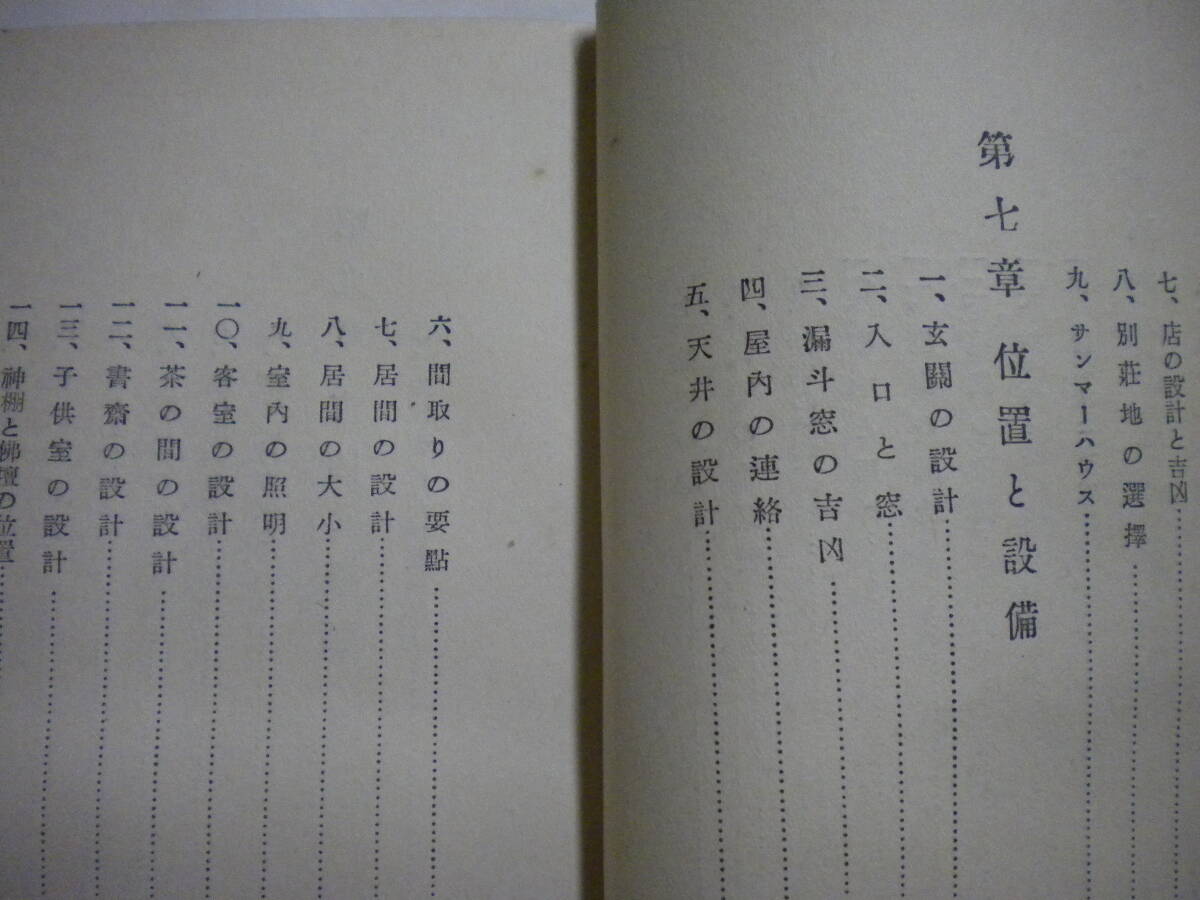 七、店の設計と吉凶
八、別莊地の選擇
九、サンマーハウス
第七章 位置と設備
一、玄關の設計
二、入口と窓
三、漏斗窓の吉凶
四、屋内の連絡
五、天井の設計
六、間取りの要點
七、居間の設計
八、居間の大小
九、室內の照明
一〇、客室の設計
一一、茶の間の設計
一二、書齋の設計
一三、子供室の設計
一四、神棚と佛壇の位置